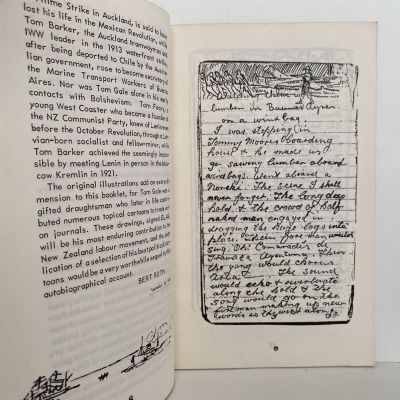 time Strike in Auckland, is said to have
lost his life in the Mexican Revolution, while
Tom Barker, the Auckland tramwayman and
IWW leader in the 1913 waterfront strike,
after being deported to Chile by the Austra-
lian government, rose to become secretary of
the Marine Transport Workers of Buenos
Aires. Nor was Tom Gale alone in his early
contacts with Bolshevism: Tom Feary, a
young West Coaster who became a founder of
the NZ Communist Party, knew of Lenin even
before the October Revolution, through a Lat-
vian-born socialist and fellow-miner, while
Tom Barker achieved the seemingly impos-
sible by meeting Lenin in person in the Mos-
cow Kremlin in 1921.
The original illustrations add an extra di-
mension to this booklet, for Tom Gale was a
gifted draughtsman who later in life contri-
buted numerous topical cartoons to
journals. These drawings, signed
will be his most enduring contribution to the
New Zealand labour movement, and the pub-
lication of a selection of his best political car-
toons would be a very worthwhile sequel to this
autobiographical account.
BERT ROTH.
8
lumber in Buenos Ayres
on a wind bag.
I was stopping in
Tommy Moores boarding
house & he made us
go sawing lumber aboard
wind bags. Went aboard a
Norske. The scene I shall
never forget. The long deep
hold & the crowd of half
naked men engaged in
dragging the huge logs into
place. Their fore-man would
sing. Oh! Commrades de
Then
the port would chorus
The sound
would echo & reverberate
along the hold & the
song would go on the
foreman making up new
words as they went along.
9